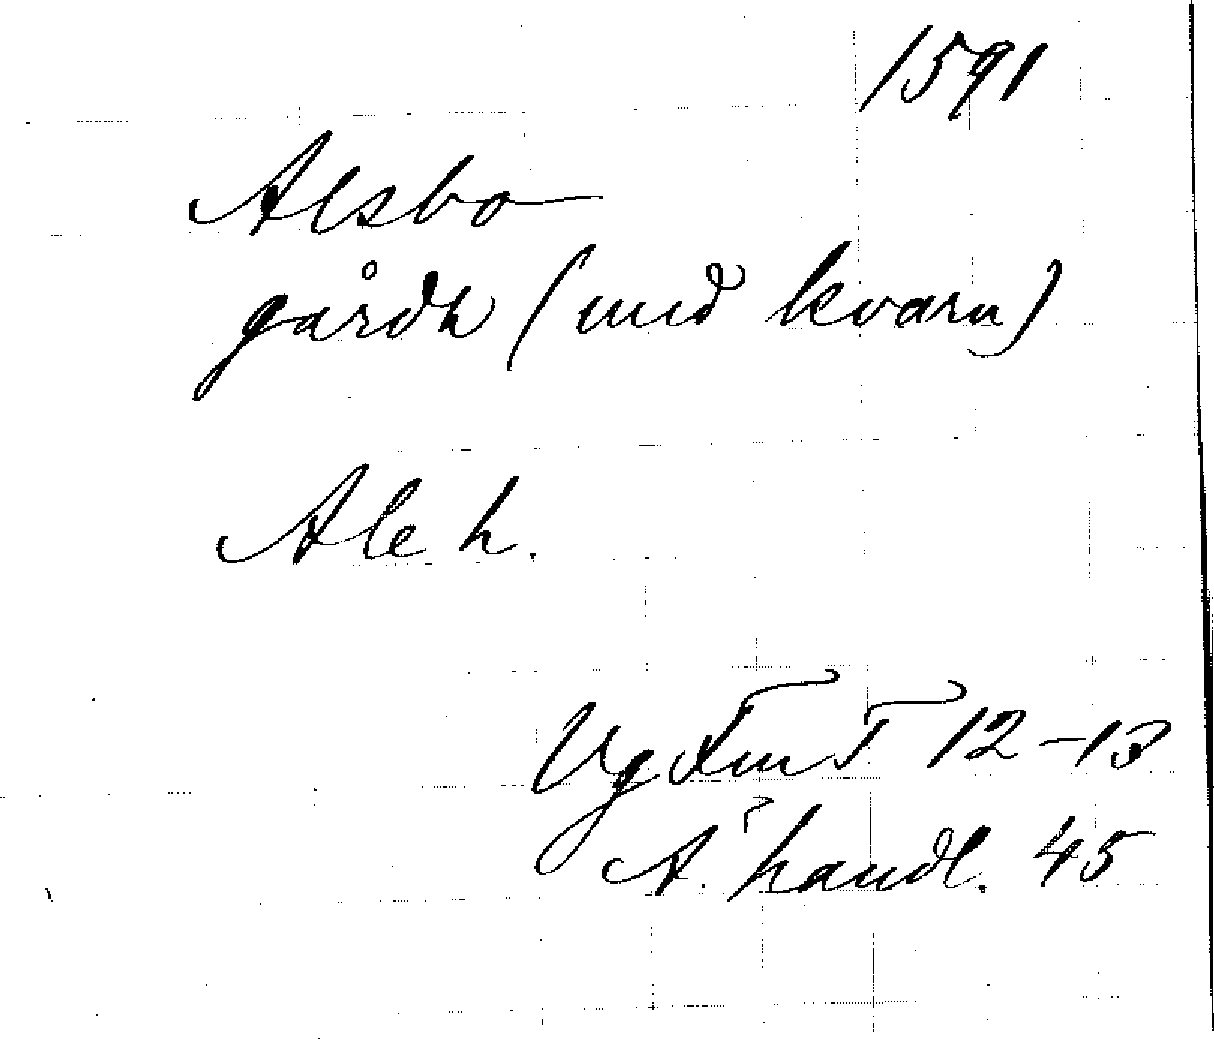 1591
Alsbo
gårdh (med kvarn)
Ale h.
Vg FmT 12-13
A. handl. 45